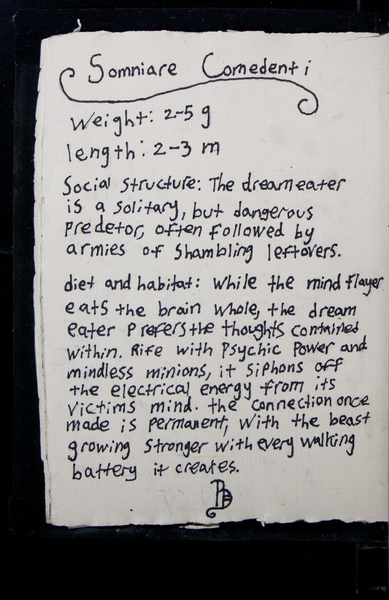 Somniare Comedenti
Weight: 2-5 g
length: 2-3 m
Social Structure: The dreameater
is a solitary, but dangerous
Predetor, often followed by
armies of Shambling leftovers.
diet and habitat: While the mind flayer
eats the brain whole, the dream
eater Prefers the thoughts contained
within. Rife with Psychic Power and
mindless minions, it siphons off
the electrical energy from its
victims mind. the connection once
made is Permanent, With the beast
growing stronger with every walking
battery it creates.